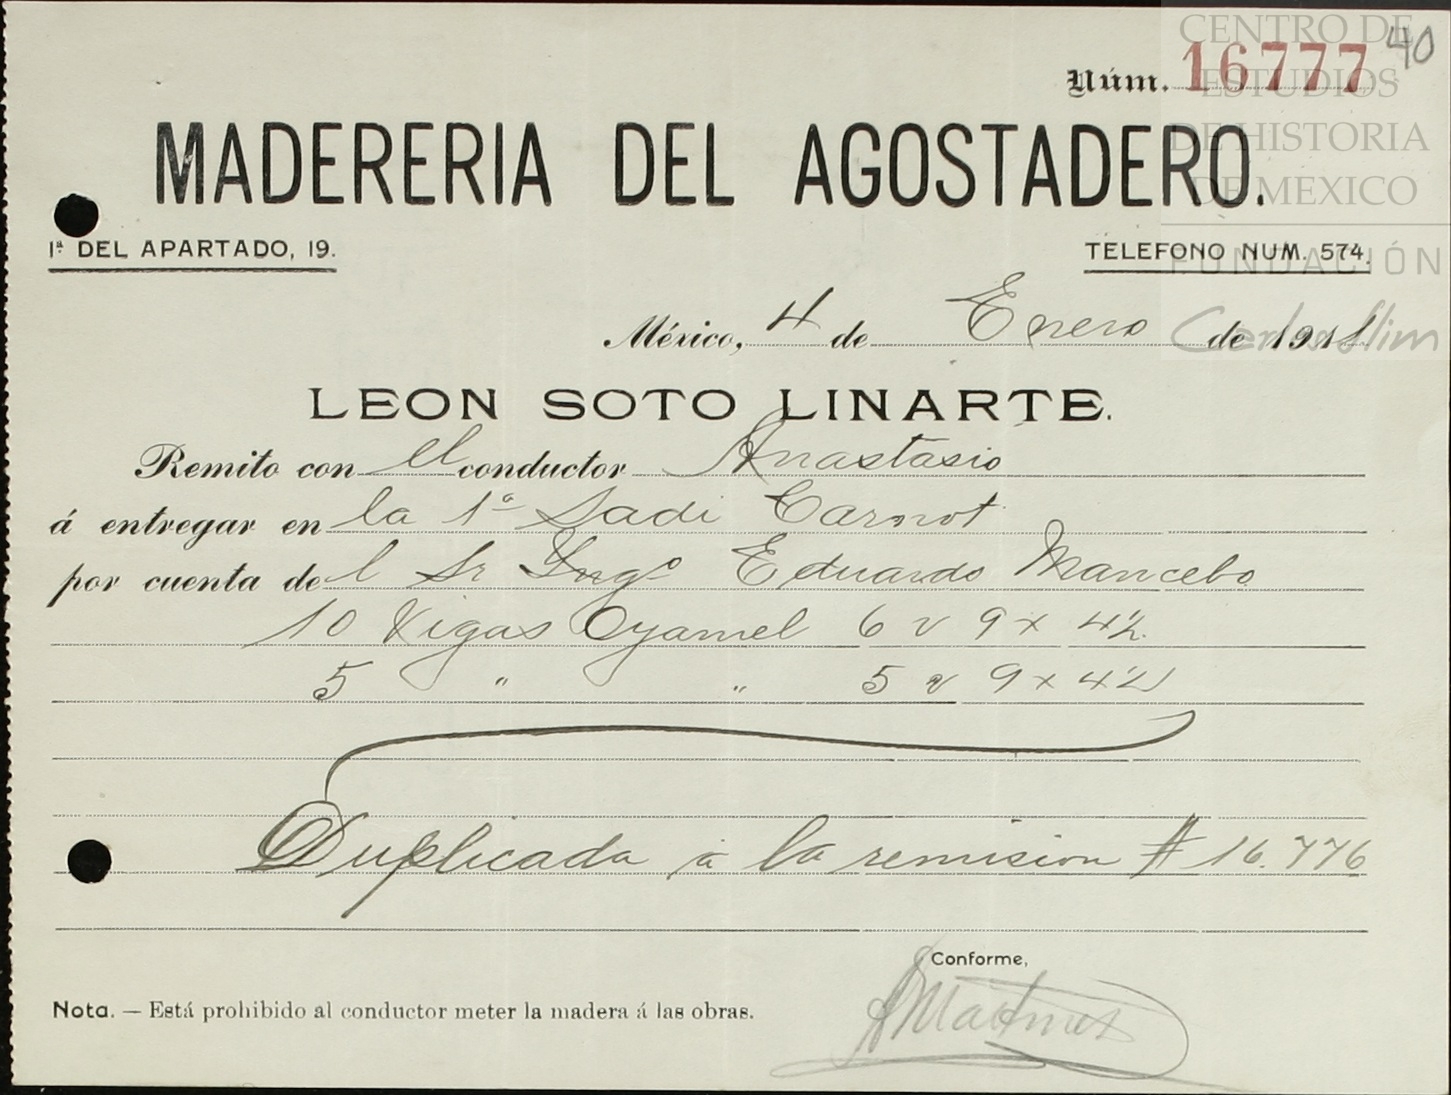 40
Núm. 16777
CENTRO DE
ESTUDIOS
DE HISTORIA
DE MEXICO
FUNDACIÓN
Carlos Slim
MADERERIA DEL AGOSTADERO.
1ª DEL APARTADO, 19.
TELEFONO NUM. 574.
México, 4 de Enero de 1911
LEON SOTO LINARTE.
Remito con el conductor Anastasio
á entregar en la 1ª Sadi Carnot
por cuenta del Sr Ingº Eduardo Mancebo
10 Vigas Oyamel 6 v 9 x 4½
5 " " 5 v 9 x 4½
Duplicada a la remision # 16.776
Conforme,
Nota. — Está prohibido al conductor meter la madera á las obras.
Martinez